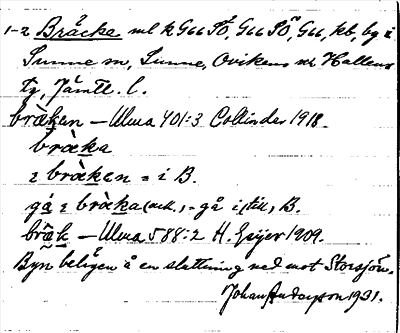 1-2 Bräcka ml k G66 SÖ, G66 SÖ, G66, kb, by i
Sunne sn, Sunne, Ovikens och Hallens
tg, Jämtl. l.
bràkan — Ulma 401:3 Collinder 1918.
bràka
i bràken = i B.
gá i bràka (ack.), = gå i, till, B.
bràk — Ulma 588:2 H. Geijer 1909.
Byn belägen å en sluttning ned mot Storsjön.
Johan Anderson 1931.